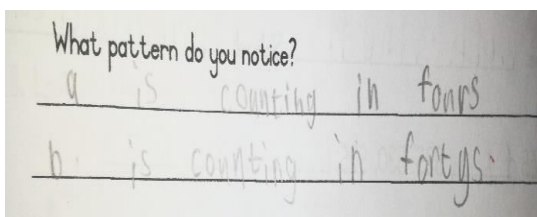 What pattern do you notice?
a is counting in fours
b. is counting in fortys.